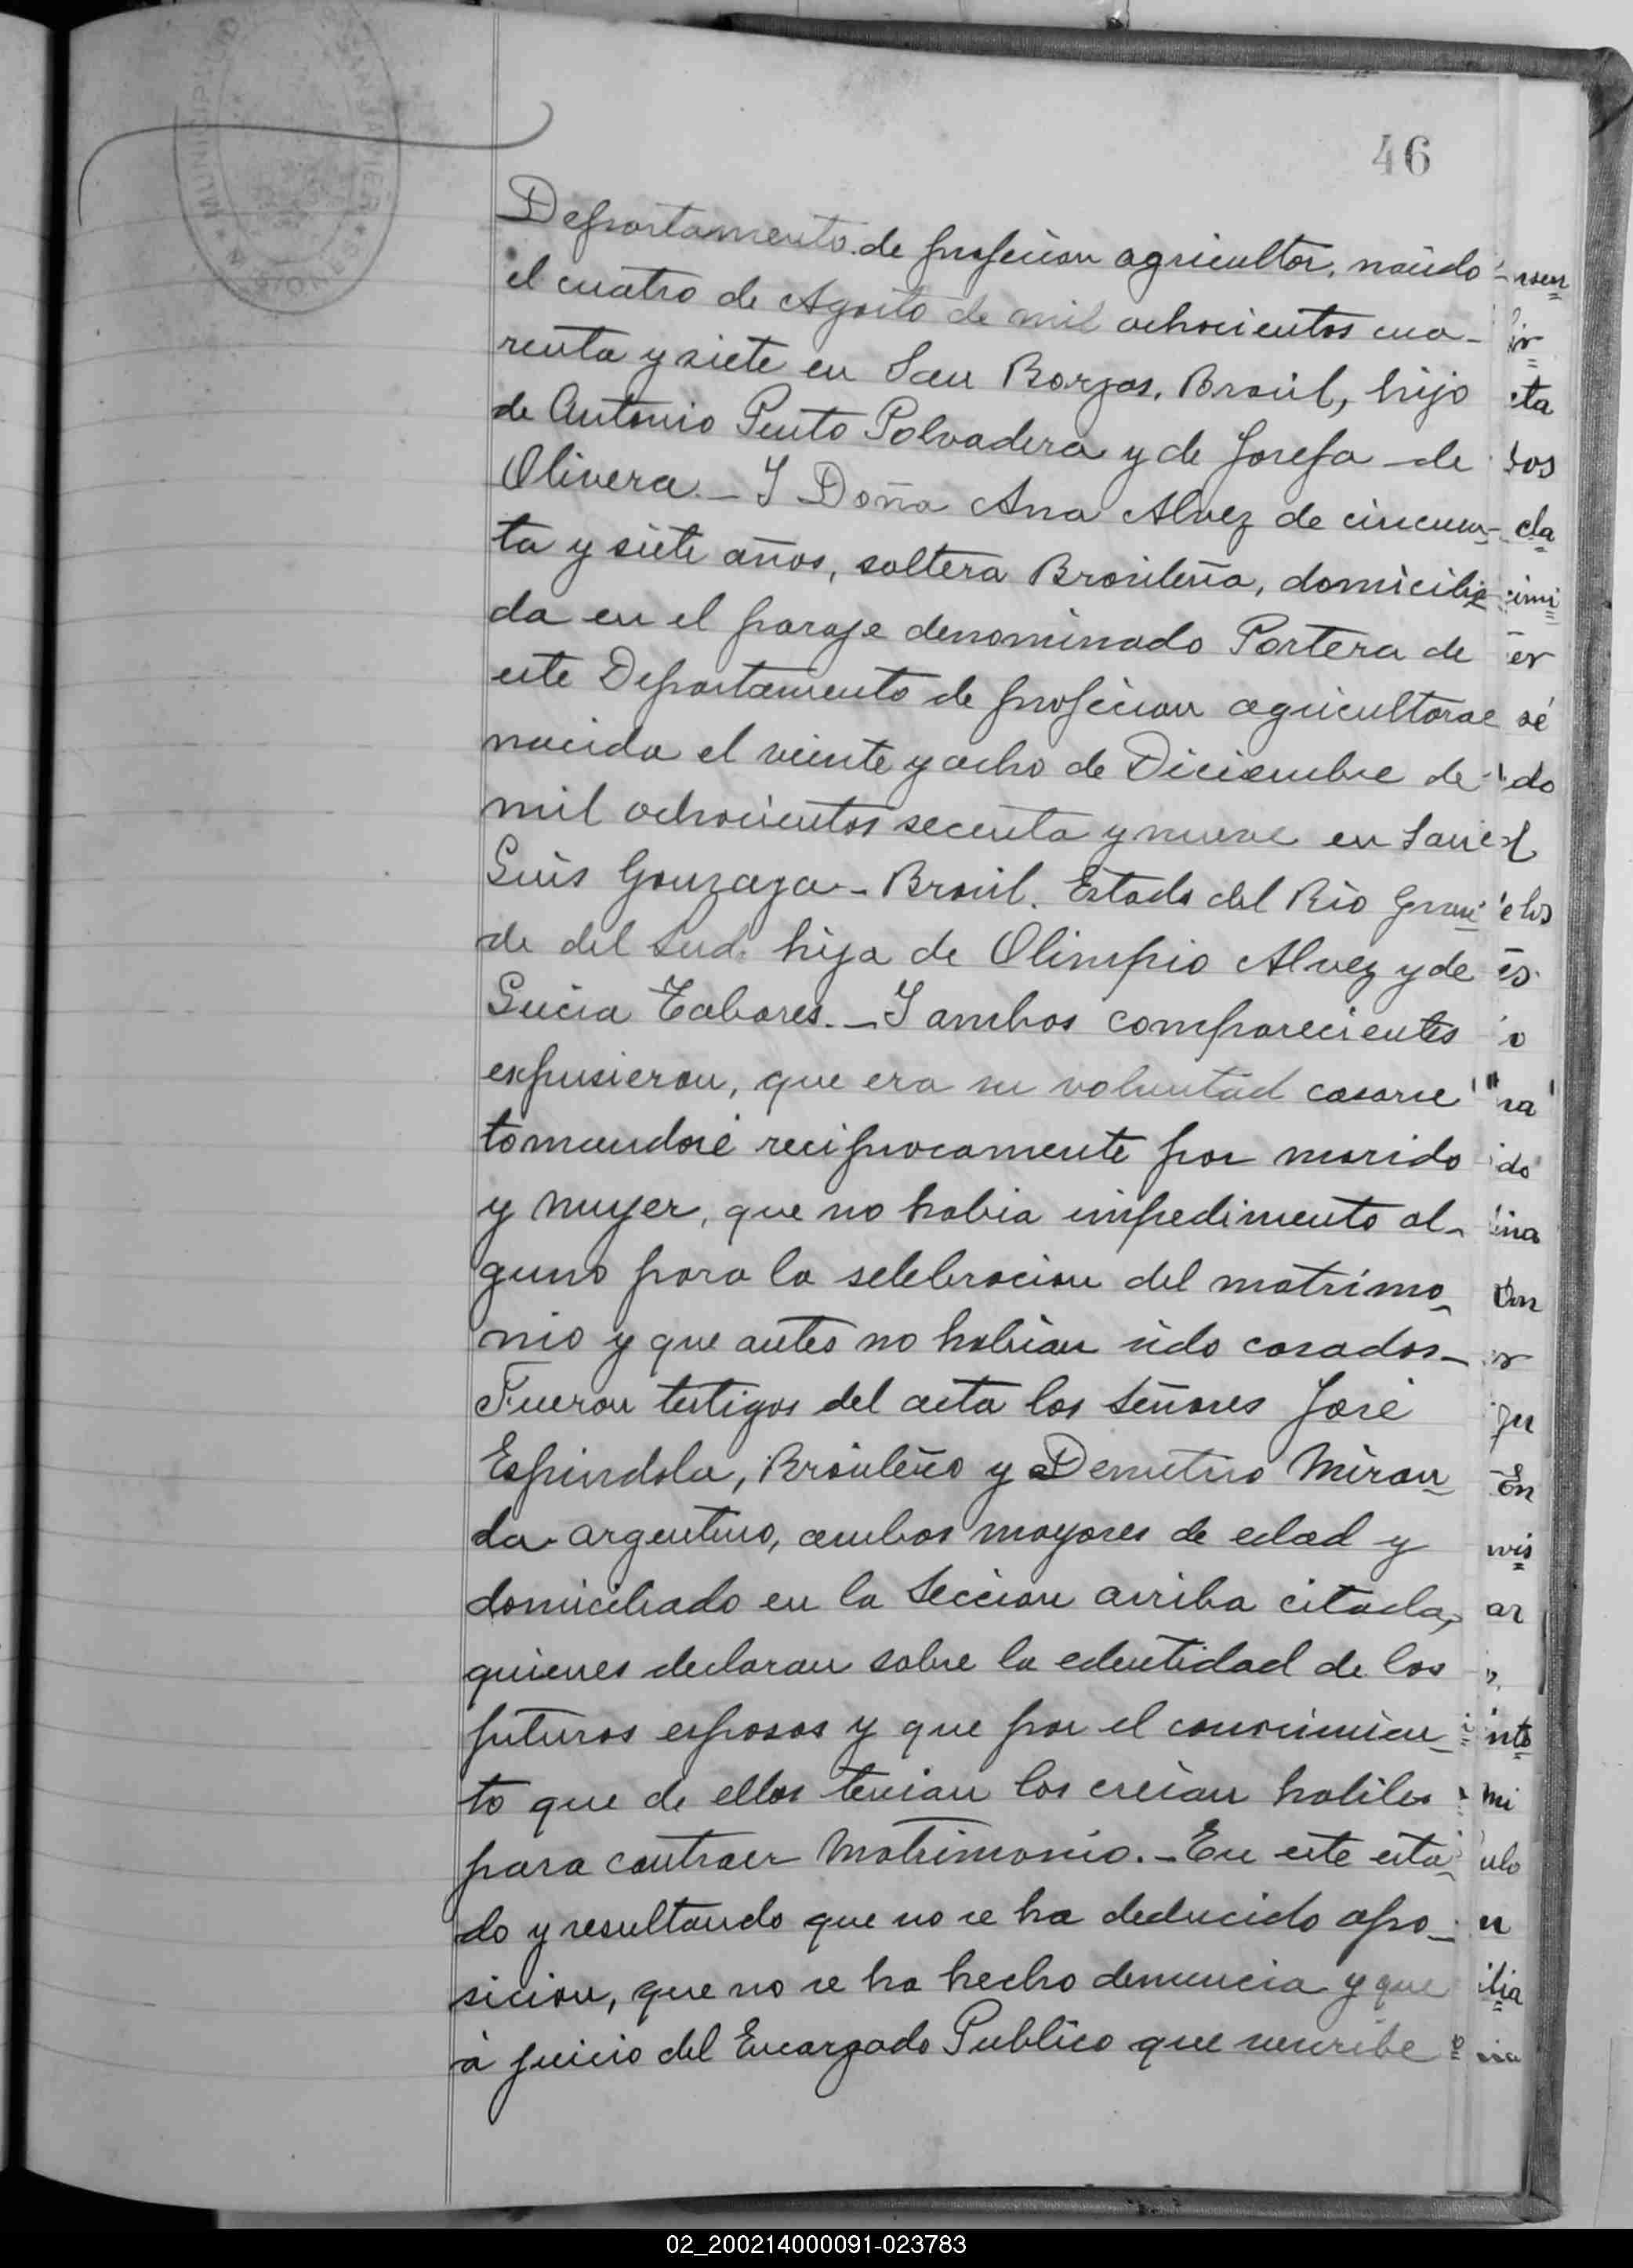 46
Departamento de profecion agricultor, nacido
el cuatro de Agosto de mil ochocientos cua-
renta y siete en San Borjas, Brasil, hijo
de Antonio Pento Polvadera y de Josefa de
Olivera.- I Doña Ana Alvez de cincuen-
ta y siete años, soltera Brasileña, domicilia
da en el paraje denominado Portera de
este Departamento de profecion agricultora
nacida el veinte y ocho de Diciembre de
mil ochocientos secenta y nueve en San
Luis Gonzaga - Brasil. Estado del Rio Gran
de del Sud. hija de Olimpio Alvez y de
Lucia Tabares.- I ambos comparecientes
expusieron, que era su voluntad casarse
tomandose reciprocamente por marido
y muyer, que no habia impedimento al-
guno para la selebracion del matrimo-
nio y que antes no habian sido casados-
Fueron testigos del acta los señores José
Espindola, Brasileño y Demetrio Miran
da argentino, ambos mayores de edad y
domiciliado en la Seccion arriba citada,
quienes declaran sobre la edentidad de los
futuros esposos y que por el conocimien-
to que de ellos tenian los creian habiles
para contraer Matrimonio.- En este esta
do y resultando que no se ha deducido opo-
sicion, que no se ha hecho denuncia y que
á juicio del Encargado Publico que suscribe
02_200214000091-023783